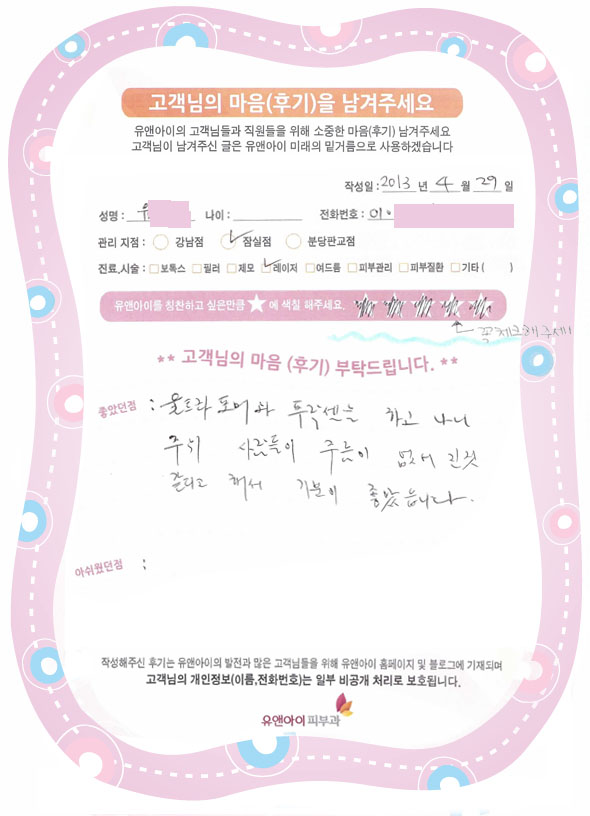 고객님의 마음(후기)을 남겨주세요
유앤아이의 고객님들과 직원들을 위해 소중한 마음(후기) 남겨주세요
고객님이 남겨주신 글은 유앤아이 미래의 밑거름으로 사용하겠습니다
작성일 : 2013 년 4 월 29 일
성명 : 나이 : 전화번호 : 01
관리 지점 : 강남점 잠실점 분당판교점
진료,시술 : 보톡스 필러 제모 레이저 여드름 피부관리 피부질환 기타 ( )
유앤아이를 칭찬하고 싶은만큼 ★ 에 색칠 해주세요.
꼭 체크해 주세요
** 고객님의 마음 (후기) 부탁드립니다. **
좋았던점 : 울트라 포머와 투락센을 하고 나니
주위 사람들이 주름이 없어 진것
같다고 해서 기분이 좋았습니다.
아쉬웠던점 :
작성해주신 후기는 유앤아이의 발전과 많은 고객님들을 위해 유앤아이 홈페이지 및 블로그에 기재되며
고객님의 개인정보(이름,전화번호)는 일부 비공개 처리로 보호됩니다.
유앤아이피부과